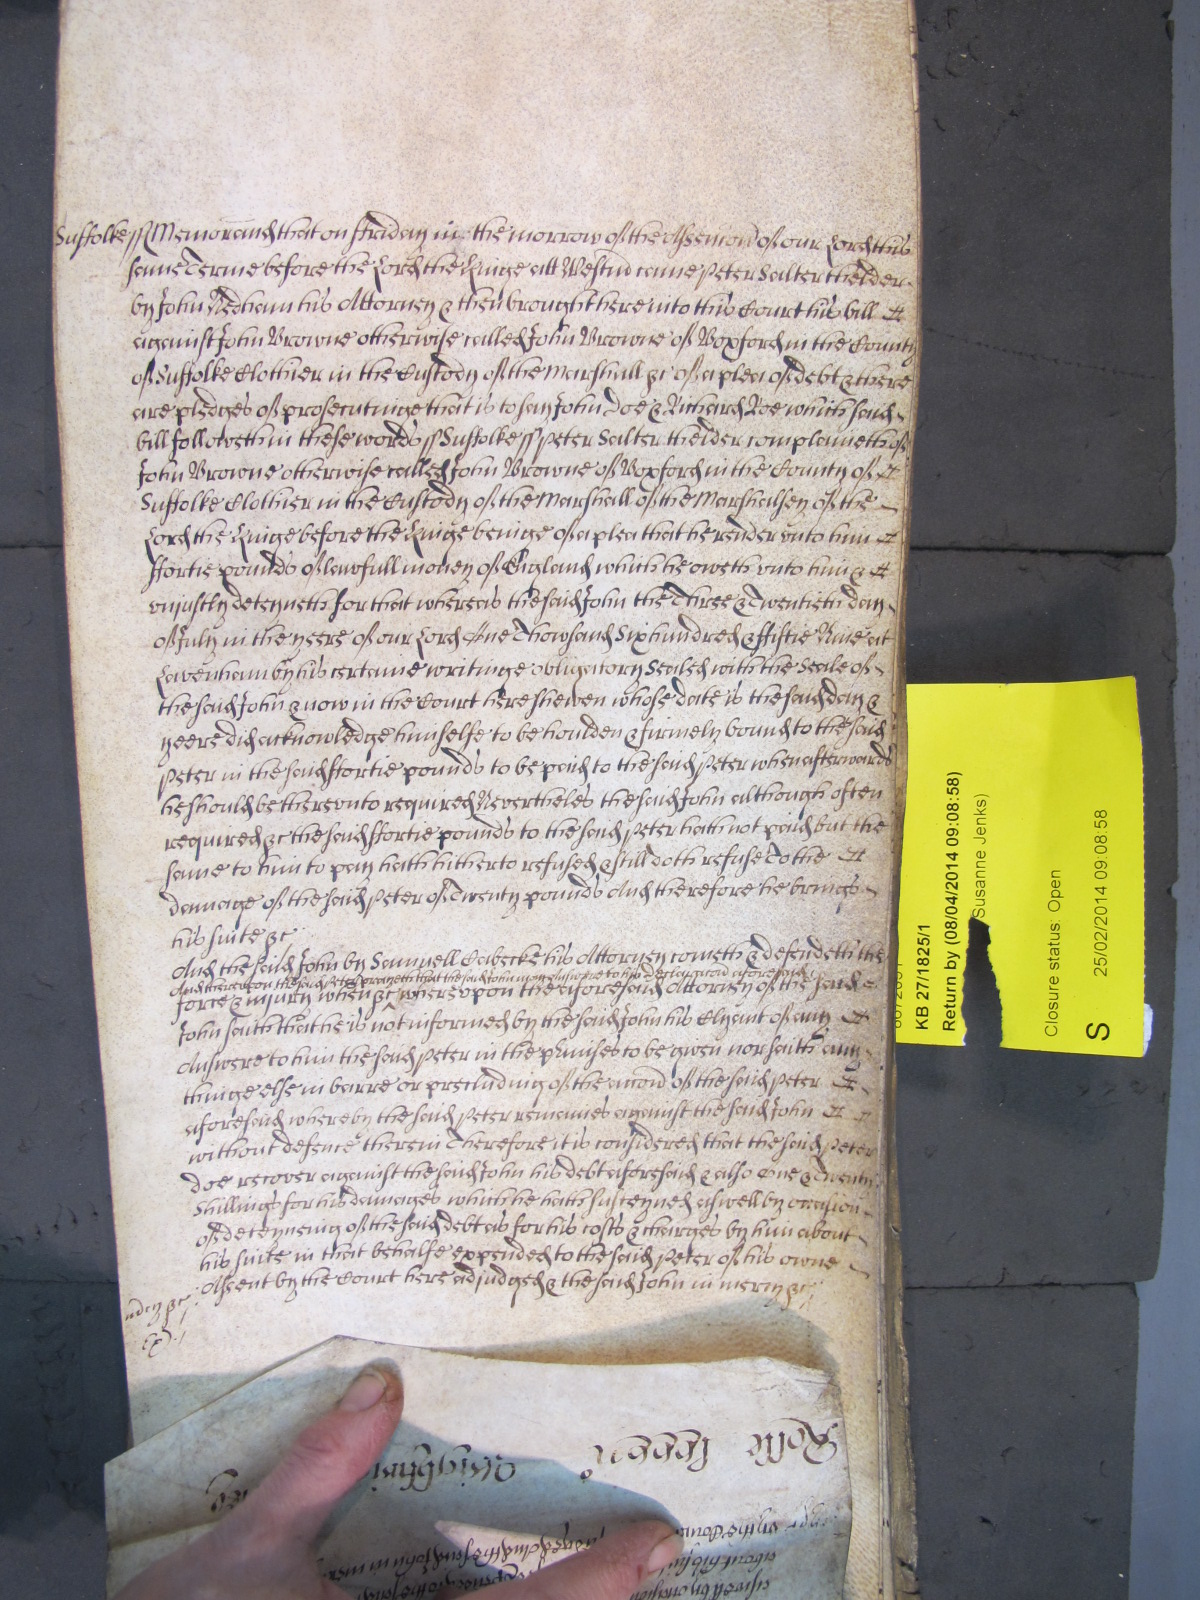 Suffolke ss Memorand that on ffriday in the morrow of the Assencion of our Lord this
same Terme before the Lord the Kinge att Westm came Peter Salter thelder
by John Nedham his Attorney & then brought here into this Court his bill
against John Browne otherwise called John Browne of Boxford in the County
of Suffolke Clothier in the Custody of the Marshall &c of a plea of debt & there
are pledges of prosecutinge that is to say John Doe & Richard Roe which said
bill followeth in these words ss Suffolke ss Peter Salter thelder complaineth of
John Browne otherwise called John Browne of Boxford in the County of
Suffolke Clothier in the Custody of the Marshall of the Marshalsey of the
Lord the Kinge before the Kinge beinge of a plea that he render unto him
ffortie pounds of lawfull money of England which he oweth unto him &
uniustly deteyneth for that whereas the said John the Three & Twentieth day
of July in the yeere of our Lord One Thowsand Six hundred & ffiftie Nine at
Lavenham by his certaine writinge obligatory Sealed with the Seale of
the said John & now in the Court here shewen whose date is the said day &
yeere did acknowledge himselfe to be houlden & firmely bound to the said
Peter in the said ffortie pounds to be paid to the said Peter when afterwards
he should be thereunto required Nevertheles the said John although often
required &c the said ffortie pounds to the said Peter hath not paid but the
same to him to pay hath hitherto refused & still doth refuse To the
damage of the said Peter of Twenty pounds And therefore he brings
his suite &c
And the said John by Samuell his Attorney cometh & defendeth the
And thereupon the said Peter prayeth that the said John may answere to his declaracion aforesaid
force & iniury when &c whereupon the aforesaid Attorney of the said
John saith that he is not informed by the said John his Clyent of any
Answere to him the said Peter in the pmises to be given nor saith any
thinge else in barre or precluding of the accon of the said Peter
aforesaid whereby the said Peter remaines against the said John
without defence therein Therefore it is considered that the said Peter
doe recover against the said John his debt aforesaid & also One & Twenty
shillings for his damages which he hath susteyned aswell by occasion
of deteyneing of the said debt as for his costs & charges by him about
his suite in that behalfe expended to the said Peter of his owne
Assent by the Court here adjudged & the said John in mercy &c
mercy &c
KB 27/1825/1
Return by (08/04/2014 09:08:58)
Susanne Jenks)
Closure status: Open
S
25/02/2014 09:08:58